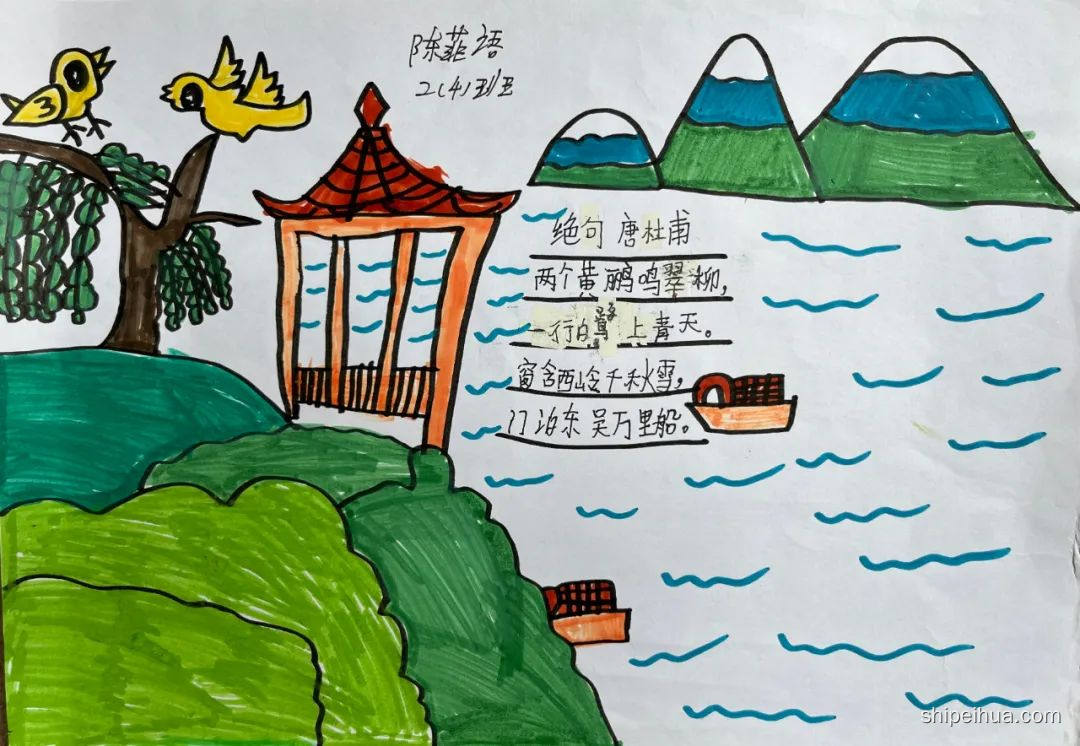 陈菲语
2(4)班
绝句 唐杜甫
两个黄鹂鸣翠柳,
一行白鹭上青天。
窗含西岭千秋雪,
门泊东吴万里船。
shipeihua.com